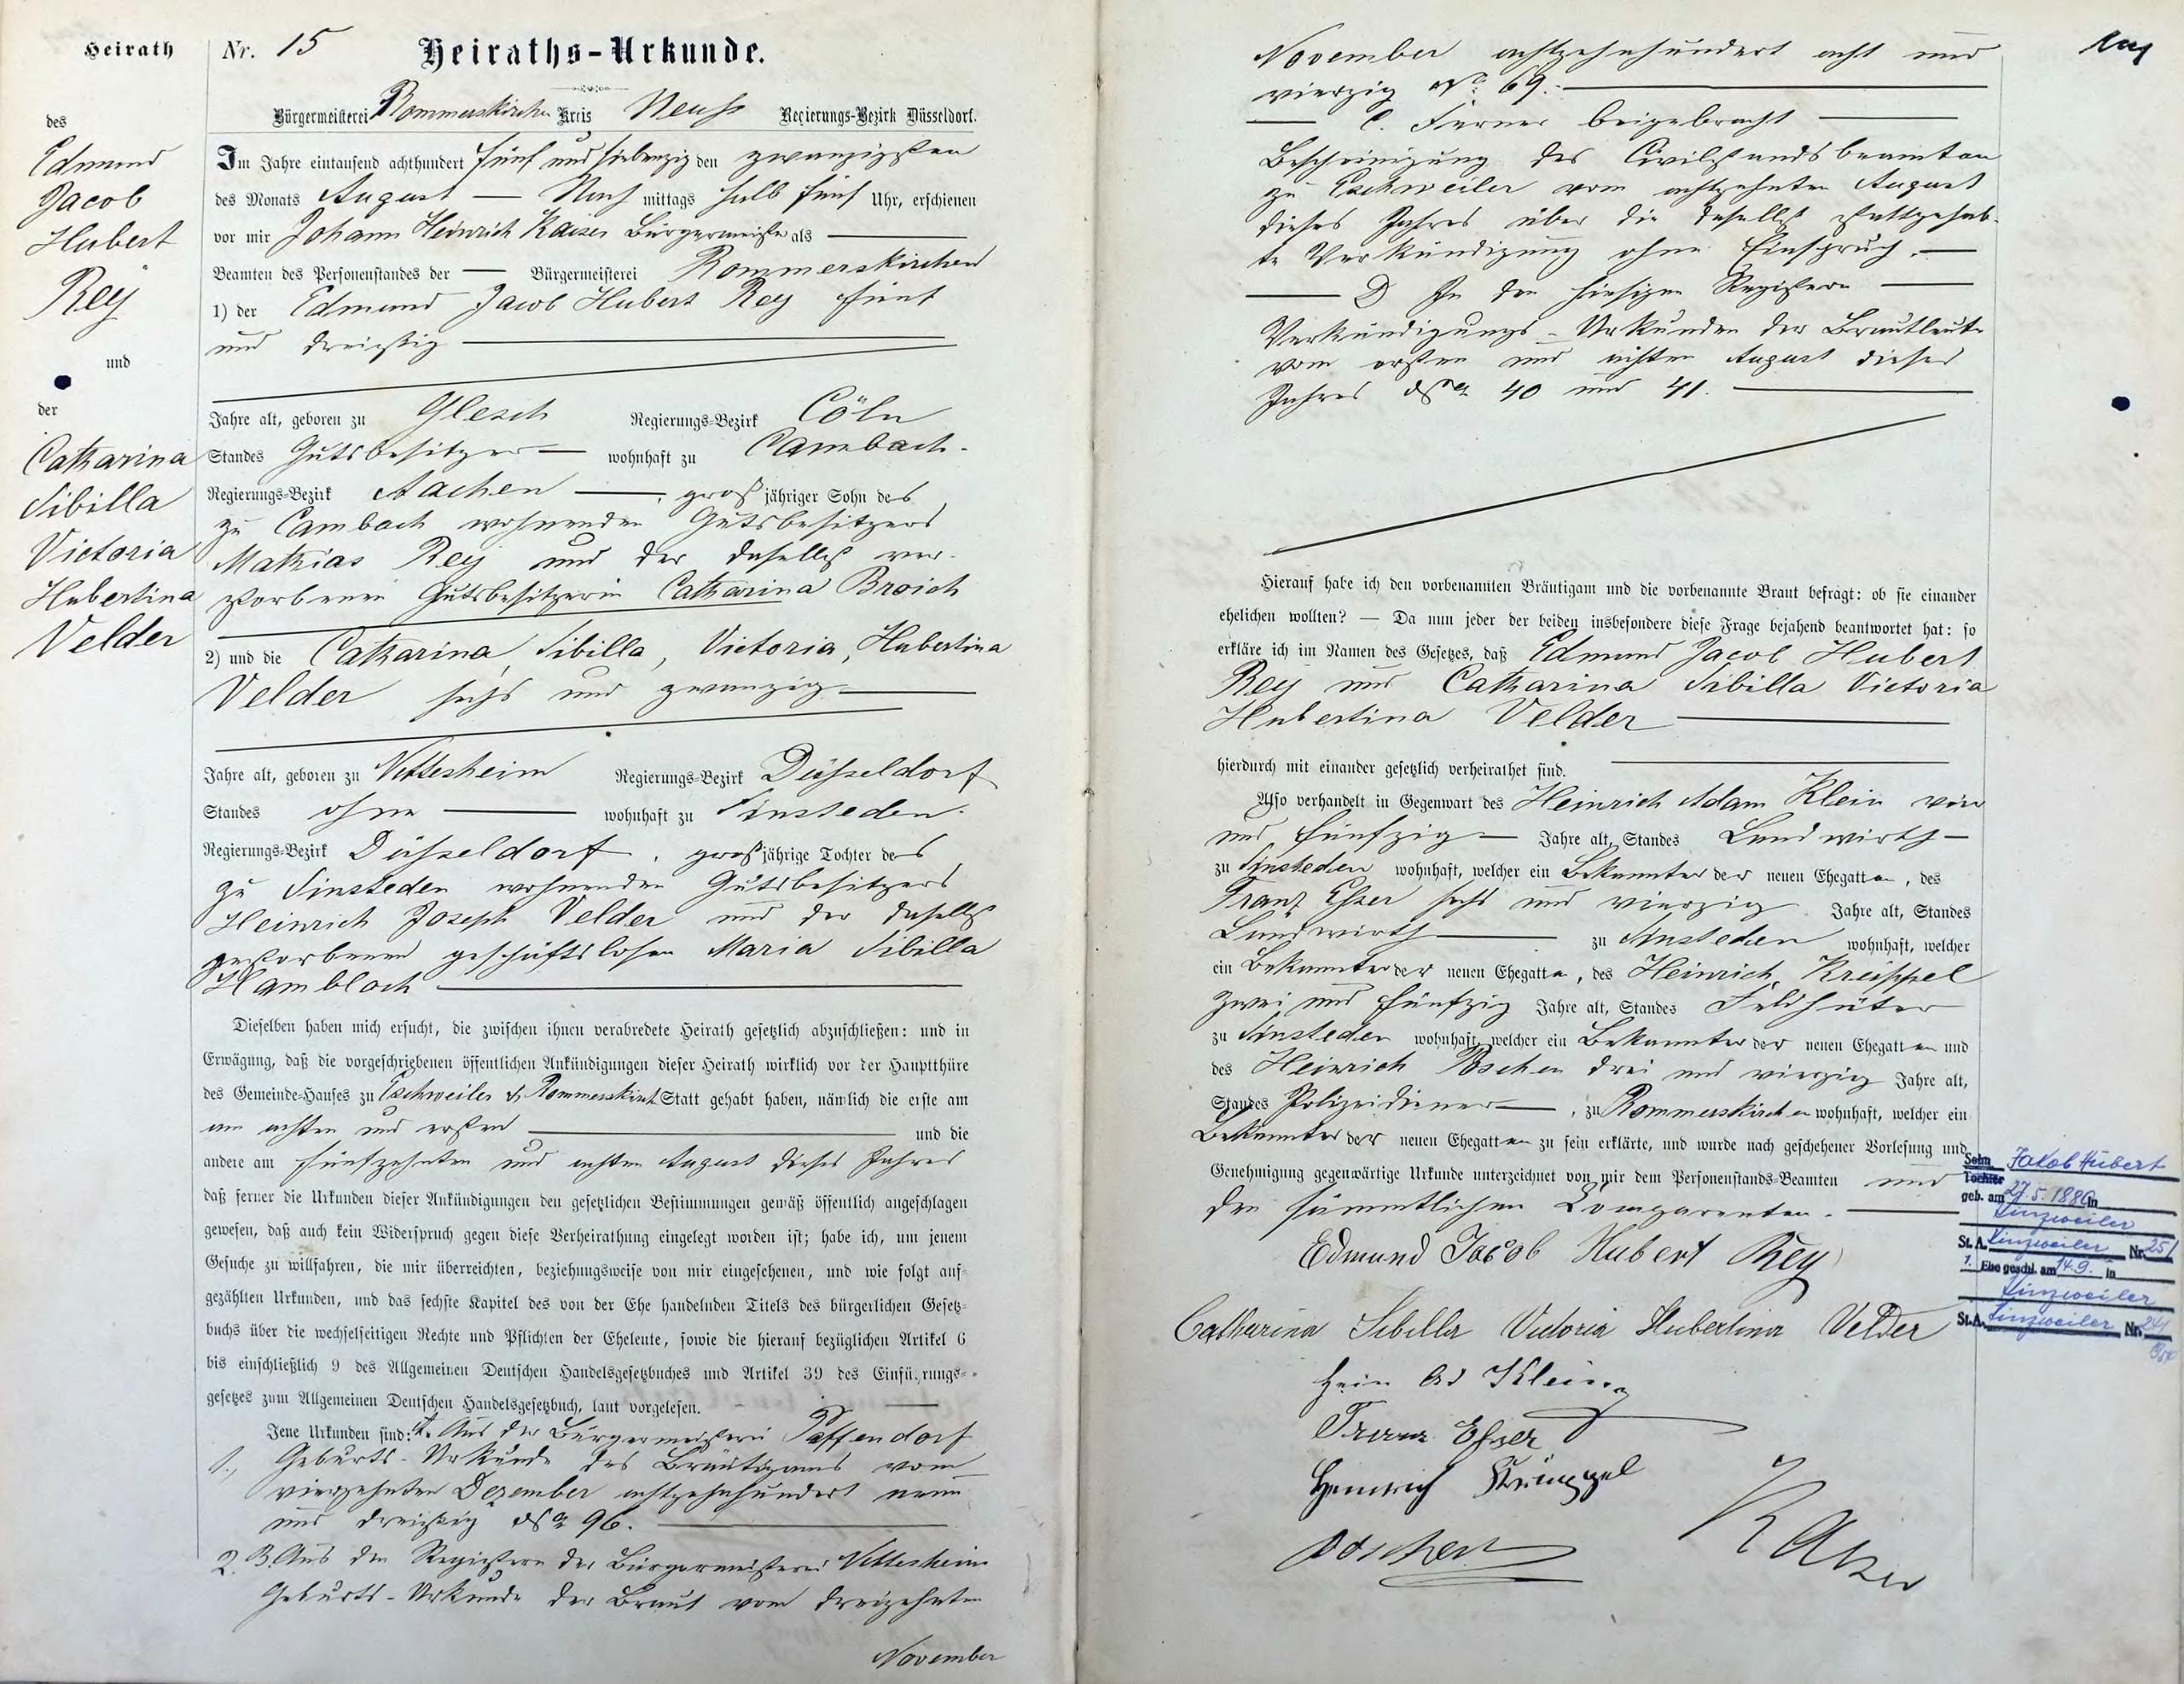 Heirath
des
Edmund
Jacob
Hubert
Rey
und
der
Catharina
Sibilla
Victoria
Hubertina
Velder
Nr. 15 Heiraths-Urkunde.
Bürgermeisterei Rommerskirchen Kreis Neuß Regierungs-Bezirk Düsseldorf.
Im Jahre eintausend achthundert fünf und siebenzig den zwanzigsten
des Monats August — Nach mittags halb fünf Uhr, erschienen
vor mir Johann Heinrich Kaiser Bürgermeister als
Beamten des Personenstandes der — Bürgermeisterei Rommerskirchen
1) der Edmund Jacob Hubert Rey fünf
und dreißig
Jahre alt, geboren zu Glesch Regierungs-Bezirk Cöln
Standes Gutsbesitzer — wohnhaft zu Cambach.
Regierungs-Bezirk Aachen —, großjähriger Sohn des
zu Cambach wohnenden Gutsbesitzers
Mathias Rey und der daselbst ver-
storbenen Gutsbesitzerin Catharina Broich
2) und die Catharina, Sibilla, Victoria, Hubertina
Velder sechs und zwanzig
Jahre alt, geboren zu Nettesheim Regierungs-Bezirk Düsseldorf
Standes ohne — wohnhaft zu Sinsteden.
Regierungs-Bezirk Düsseldorf, großjährige Tochter des
zu Sinsteden wohnenden Gutsbesitzers
Heinrich Joseph Velder und der daselbst
gestorbenen geschäftslosen Maria Sibilla
Hambloch
Dieselben haben mich ersucht, die zwischen ihnen verabredete Heirath gesetzlich abzuschließen: und in
Erwägung, daß die vorgeschriebenen öffentlichen Ankündigungen dieser Heirath wirklich vor der Hauptthüre
des Gemeinde-Hauses zu Eschweiler & Rommerskirch Statt gehabt haben, nämlich die erste am
am achten und ersten — und die
andere am fünfzehnten und achten August dieses Jahres
daß ferner die Urkunden dieser Ankündigungen den gesetzlichen Bestimmungen gemäß öffentlich angeschlagen
gewesen, daß auch kein Widerspruch gegen diese Verheirathung eingelegt worden ist; habe ich, um jenem
Gesuche zu willfahren, die mir überreichten, beziehungsweise von mir eingesehenen, und wie folgt auf-
gezählten Urkunden, und das sechste Kapitel des von der Ehe handelnden Titels des bürgerlichen Gesetz-
buchs über die wechselseitigen Rechte und Pflichten der Eheleute, sowie die hierauf bezüglichen Artikel 6
bis einschließlich 9 des Allgemeinen Deutschen Handelsgesetzbuches und Artikel 39 des Einführungs-
gesetzes zum Allgemeinen Deutschen Handelsgesetzbuch, laut vorgelesen.
Jene Urkunden sind: A. Aus der Bürgermeisterei Paffendorf
1., Geburts-Urkunde des Bräutigams vom
vierzehnten Dezember achtzehnhundert neun
und dreißig No 96.
2. B. Aus den Registern der Bürgermeisterei Nettesheim
Geburts-Urkunde der Braut vom dreizehnten
November
November achtzehnhundert acht und
vierzig No. 69.
C. Ferner beigebracht
Bescheinigung des Civilstandsbeamten
zu Eschweiler vom achtzehnten August
dieses Jahres über die daselbst stattgehab-
te Verkündigung ohne Einspruch.
D In den hiesigen Registern
Verkündigungs-Urkunden der Brautleute
vom ersten und achten August dieses
Jahres No 40 und 41.
Hierauf habe ich den vorbenannten Bräutigam und die vorbenannte Braut befragt: ob sie einander
ehelichen wollten? — Da nun jeder der beiden insbesondere diese Frage bejahend beantwortet hat: so
erkläre ich im Namen des Gesetzes, daß Edmund Jacob Hubert
Rey und Catharina Sibilla Victoria
Hubertina Velder
hierdurch mit einander gesetzlich verheirathet sind.
Also verhandelt in Gegenwart des Heinrich Adam Klein vier
und fünfzig — Jahre alt, Standes Landwirth —
zu Sinsteden wohnhaft, welcher ein Bekannter der neuen Ehegatten, des
Franz Esser sechs und vierzig Jahre alt, Standes
Landwirth — zu Sinsteden wohnhaft, welcher
ein Bekannter der neuen Ehegatten, des Heinrich Kreippel
zwei und fünfzig Jahre alt, Standes Feldhüter
zu Sinsteden wohnhaft, welcher ein Bekannter der neuen Ehegatten und
des Heinrich Poschen drei und vierzig Jahre alt,
Standes Polizeidiener —, zu Rommerskirchen wohnhaft, welcher ein
Bekannter der neuen Ehegatten zu sein erklärte, und wurde nach geschehener Vorlesung und
Genehmigung gegenwärtige Urkunde unterzeichnet von mir dem Personenstands-Beamten und
den sämmtlichen Comparenten.
Edmund Jacob Hubert Rey
Catharina Sibilla Victoria Hubertina Velder
Hein Ad Klein
Franz Esser
Heinrich
Poschen
Kaiser
Sohn Jakob Hubert
Tochter
geb. am 27.5.1880 in
Linzweiler
St. A. Linzweiler Nr. 251
1. Ehe geschl. am 14.9. in
Linzweiler
St. A. Linzweiler Nr. 241